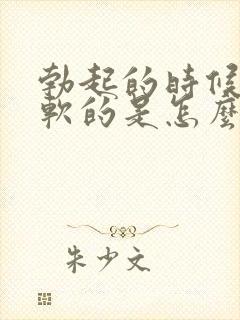 勃起的時候
軟的是怎麼
朱少文